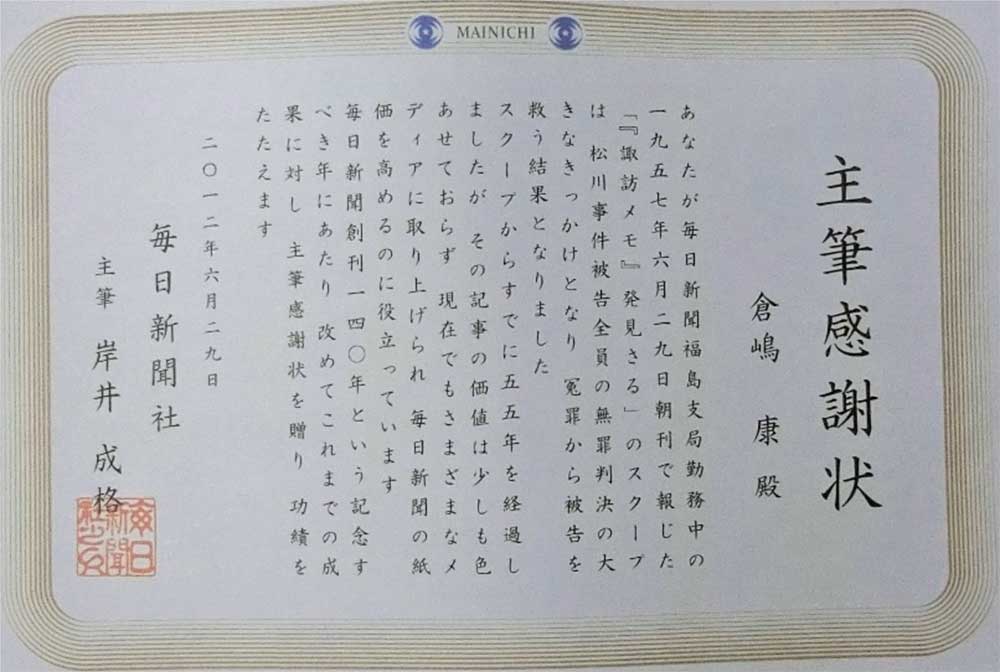 MAINICHI
主筆感謝状
倉嶋 康 殿
あなたが毎日新聞福島支局勤務中の
一九五七年六月二九日朝刊で報じた
「『諏訪メモ』発見さる」のスクープ
は 松川事件被告全員の無罪判決の大
きなきっかけとなり 冤罪から被告を
救う結果となりました
スクープからすでに五五年を経過し
ましたが その記事の価値は少しも色
あせておらず 現在でもさまざまなメ
ディアに取り上げられ 毎日新聞の紙
価を高めるのに役立っています
毎日新聞創刊一四〇年という記念す
べき年にあたり 改めてこれまでの成
果に対し 主筆感謝状を贈り 功績を
たたえます
二〇一二年六月二九日
毎日新聞社
主筆 岸井 成格
毎日新聞社